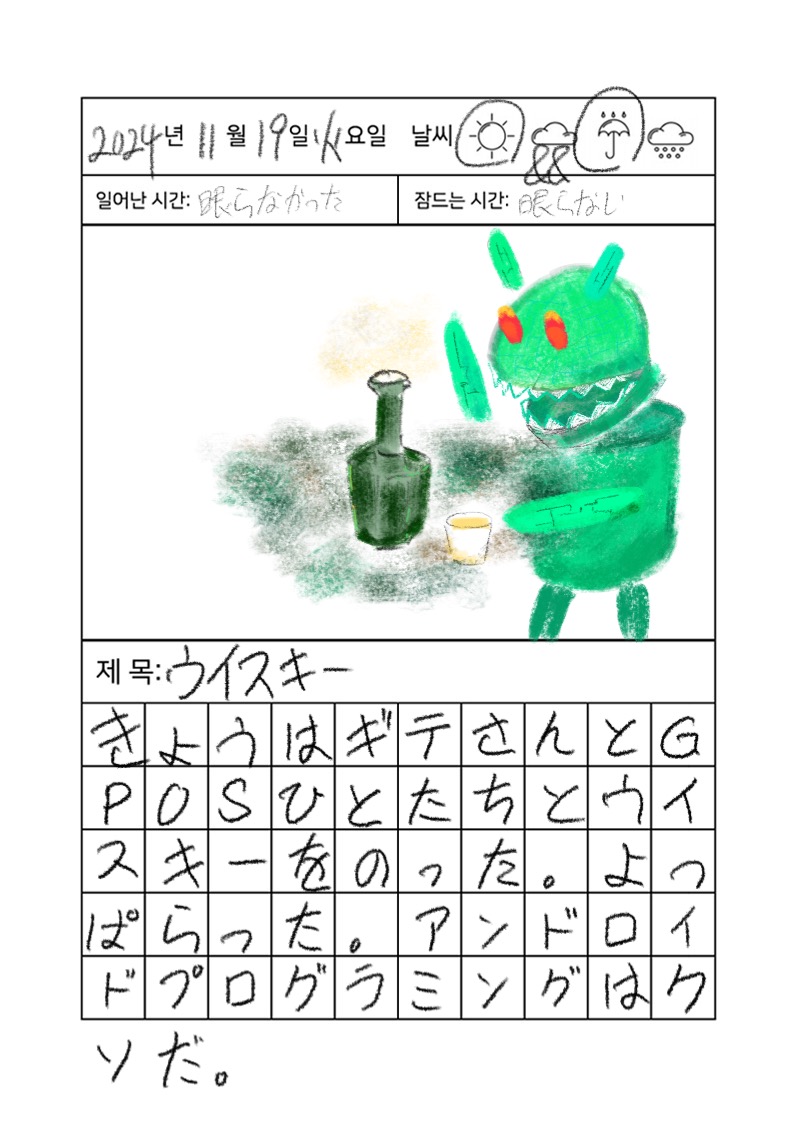 2024년 11월 19일 火요일 날씨
&&
일어난 시간: 眠らなかった 잠드는 시간: 眠らない
제 목: ウイスキー
きょうはギテさんとG
POSひとたちとウイ
スキーをのった。よっ
ぱらった。アンドロイ
ドプログラミングはク
ソだ。